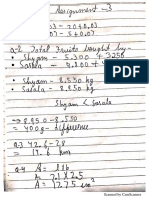 Assignment - 3
03 - 20+0.03
07 - 5+0.07
Q-2 Total Fruits bought by -
• Shyam - 5.300 + 3250
• Sarala - 4.800 +
• Shyam - 8.550 kg
• Sarala - 8.950 kg
Shyam < Sarala
→ 8.950 - 8.550
= 400g - difference
Q-3 42.6 - 28
= 17.6 km
Q-4 A = l x b
Scanned by CamScanner